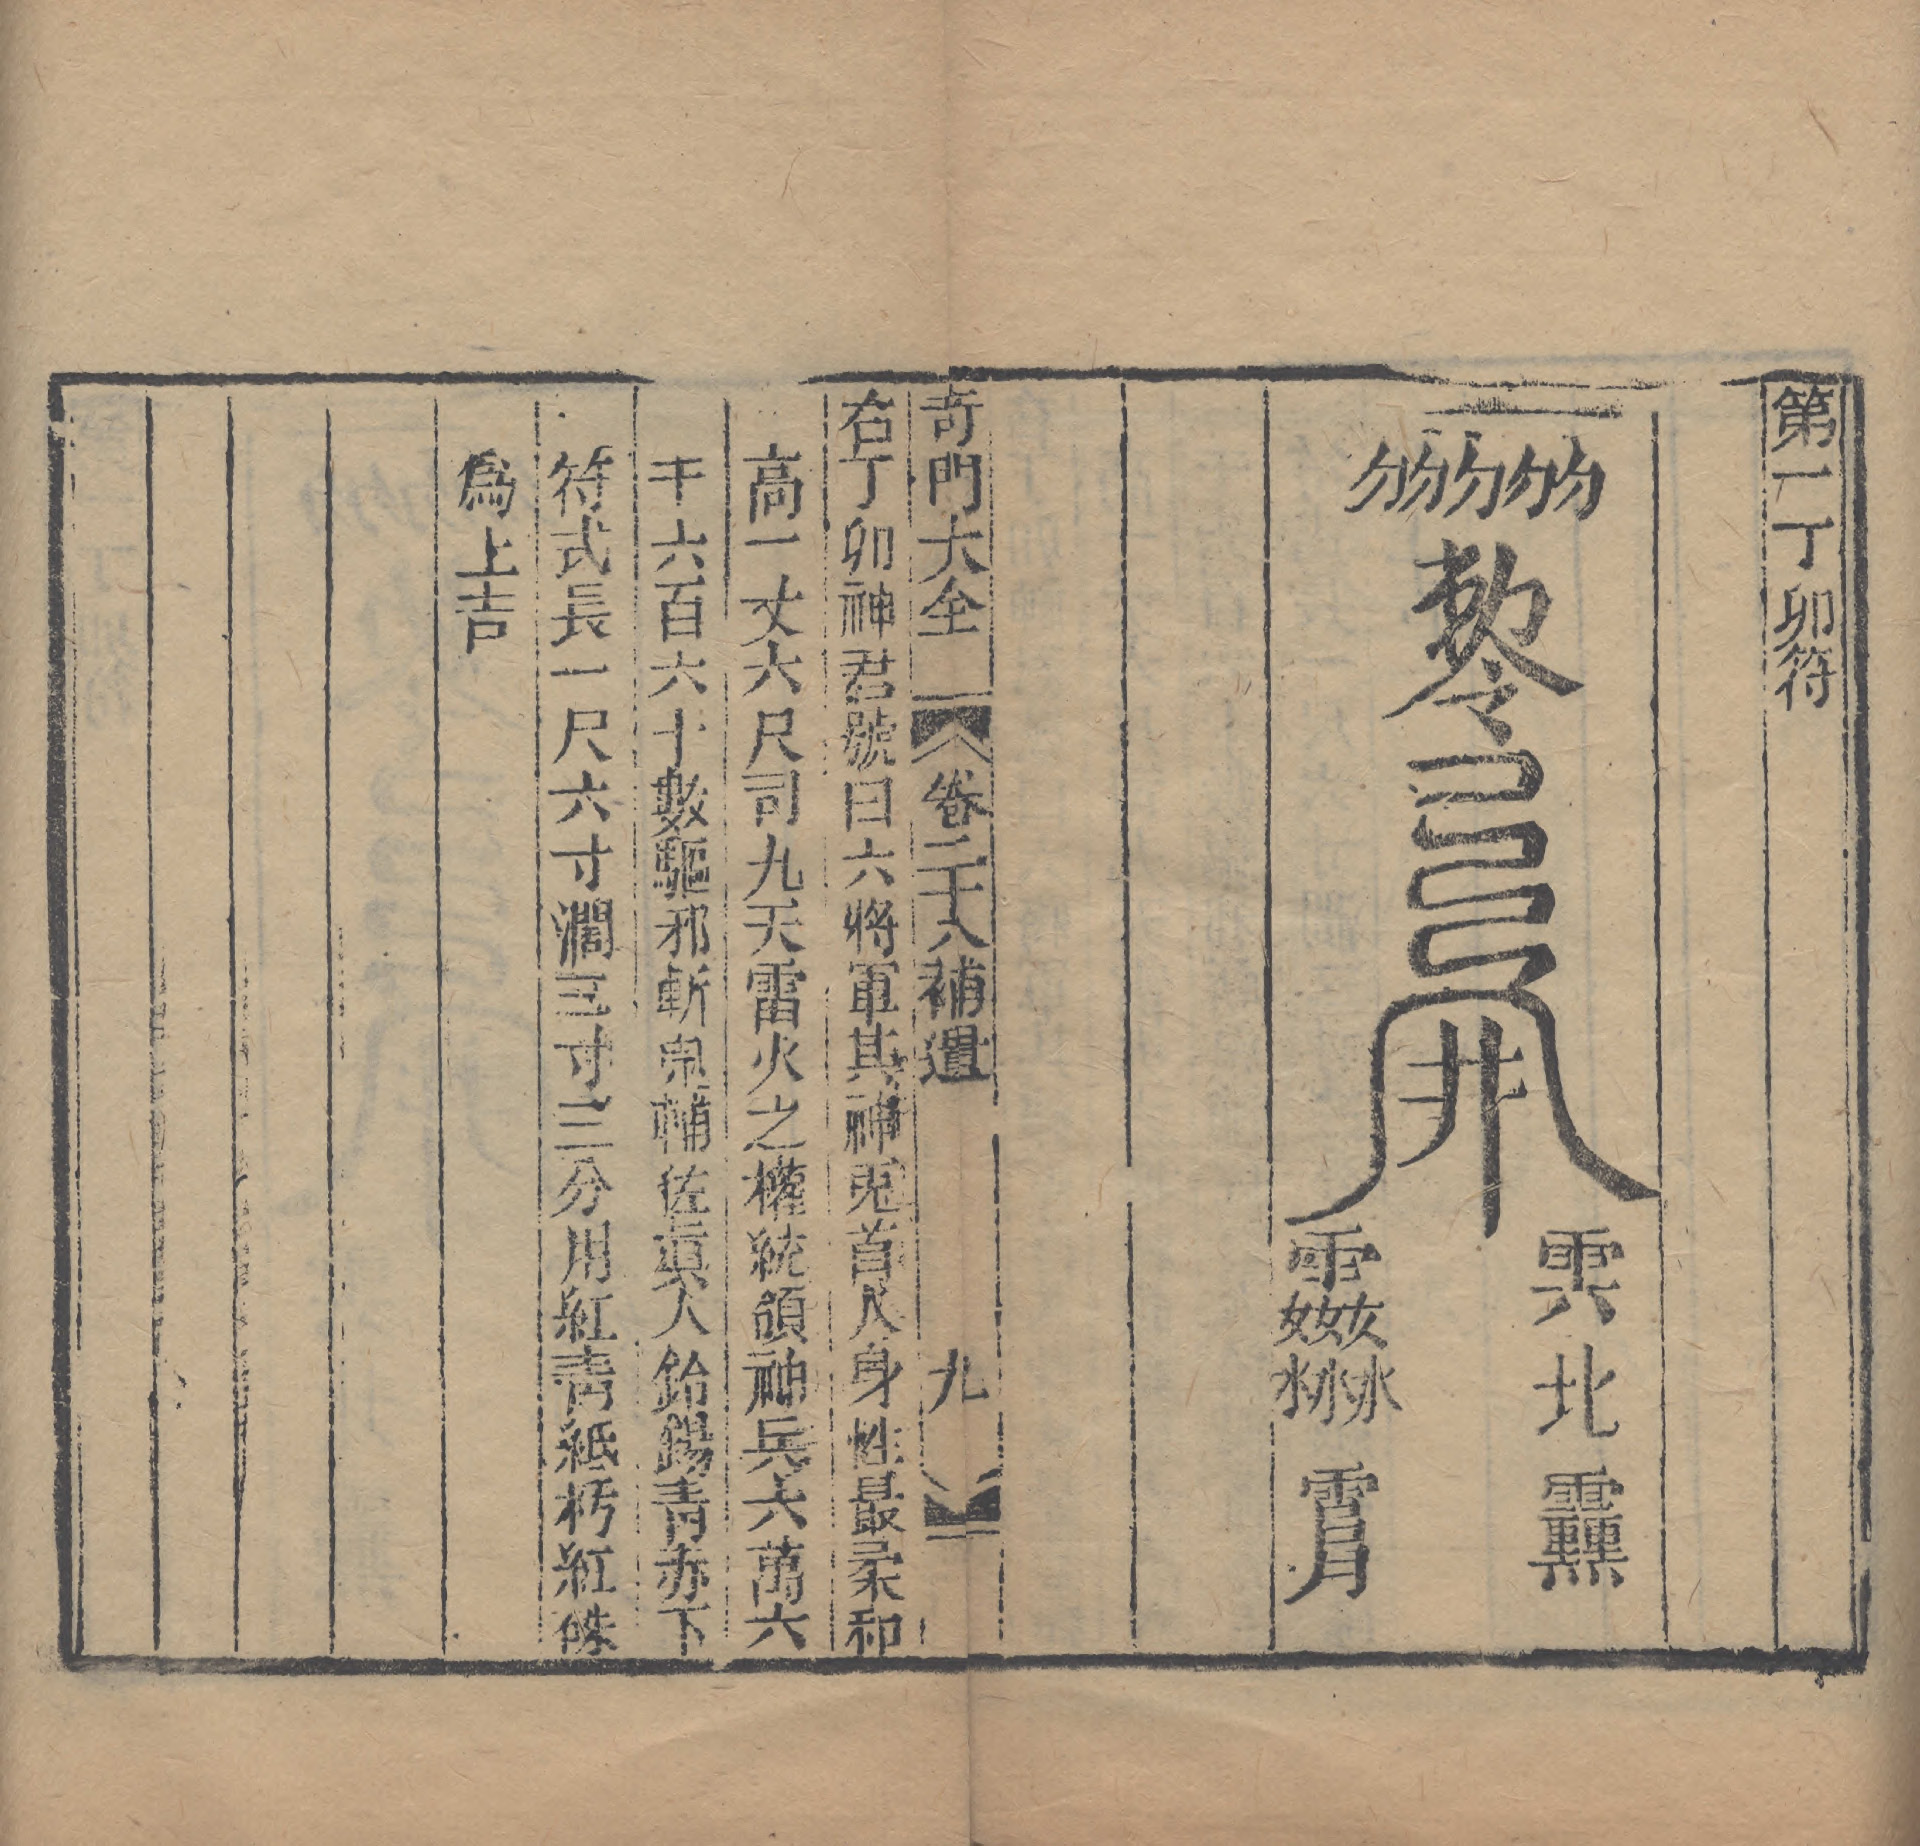 第一丁卯符
敕令
井
北
奇門大全 卷二十八補遺 九
右丁卯神君號曰六將軍其神兎首人身性最柔和
高一丈六尺司九天雷火之權統領神兵六萬六
千六百六十數驅邪斬鬼輔佐眞人鉛錫青赤下
符式長一尺六寸濶三寸三分用紅青紙朽紅硃
爲上吉